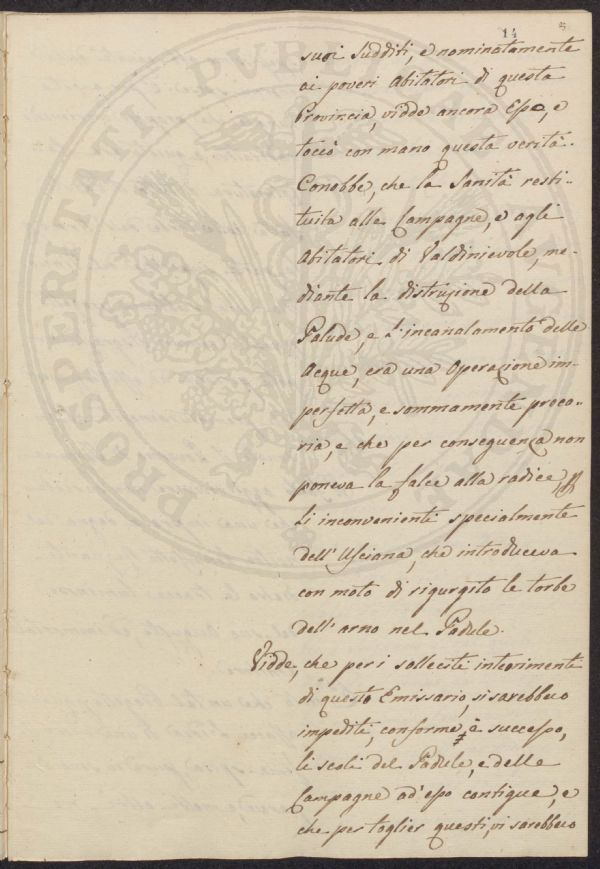 14
5
suoi sudditi, e nominatamente
ai poveri abitatori di questa
Provincia, vidde ancora Esso, e
toccò con mano questa verità.
Conobbe, che la Sanità resti-
tuita alle Campagne, e agli
abitatori di Valdinievole, me-
diante la distruzione della
Palude, e l'incanalamento delle
acque, era una operazione im-
perfetta, e sommamente preca-
ria, e che per conseguenza non
poneva la falce alla radice
l'inconvenienti specialmente
dell'Usciana, che introduceva
con moto di rigurgito le torbe
dell'arno nel Padule.
Vidde, che per i solleciti interrimenti
di questo Emissario, si sarebbero
impediti, conforme è successo,
li scoli del Padule, e delle
Campagne ad'esso contigue, e
che per toglier questi, vi sarebbero
PROSPERITATI PUBLICAE